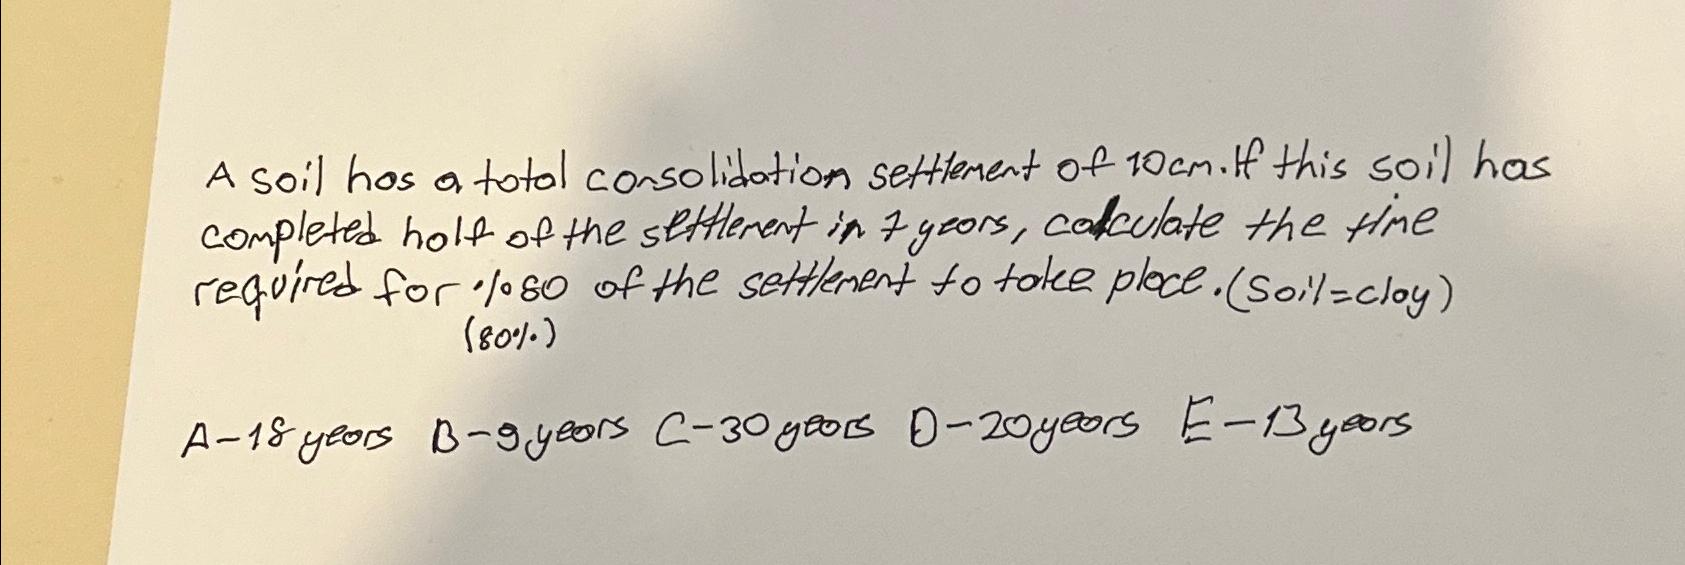 A soil has a total consolidation settlement of 10cm. If this soil has
completed half of the settlement in 7 years, calculate the time
required for %80 of the settlement to take place. (Soil=clay)
(80%)
A-18 years B-9 years C-30 years D-20 years E-13 years